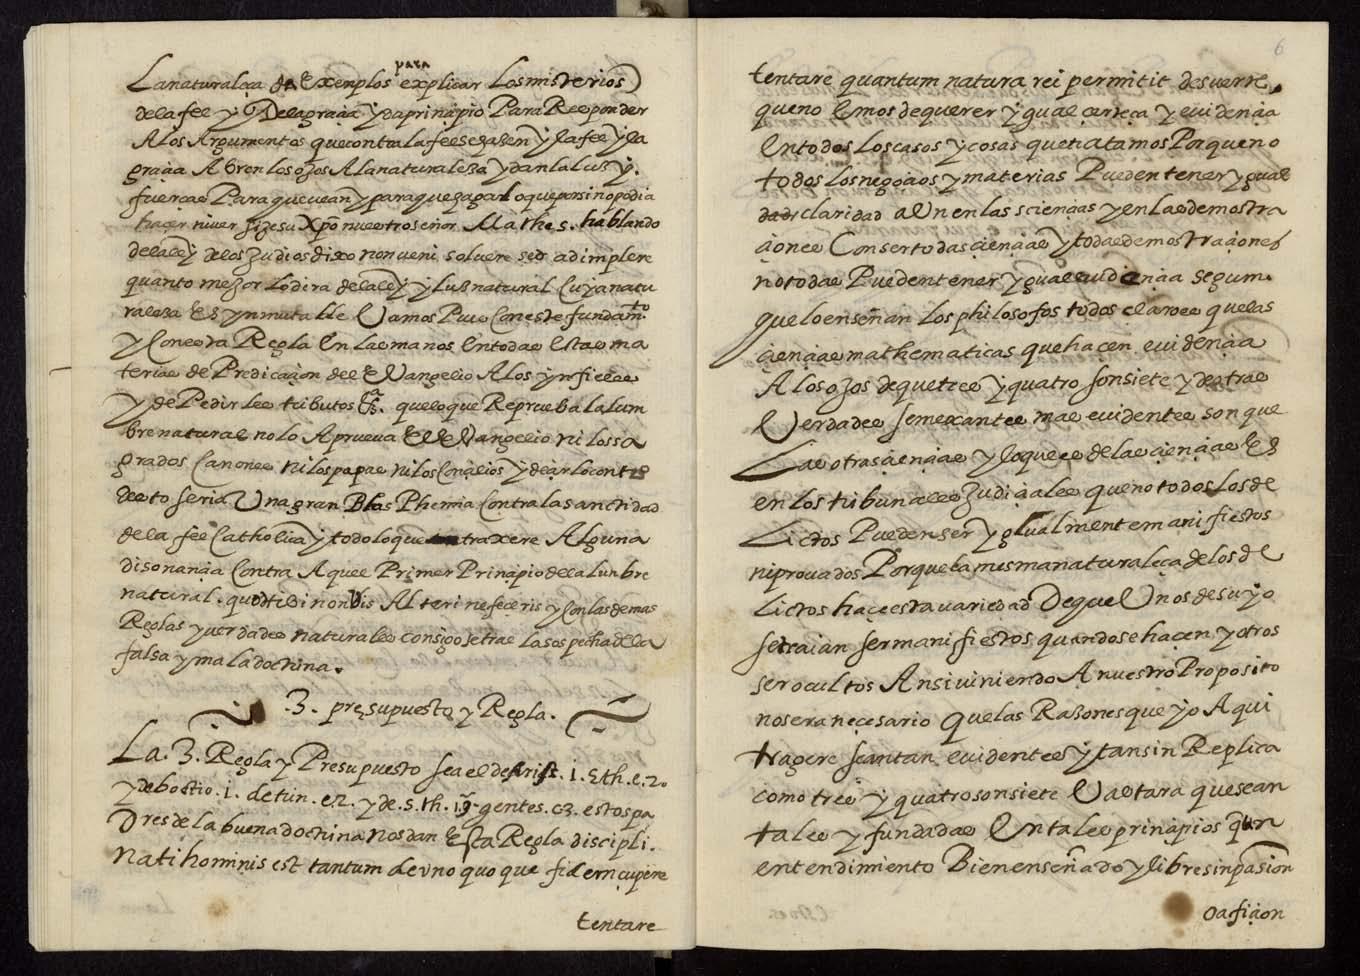 para
La naturaleça da Exemplos explicar Los misterios
de la fee y De la graçia y da prinçipio Para Responder
A los Argumentos que contra la fee se hazen y la fee y la
graçia Abren los ojos A la naturaleza y dan la luz y
fuerças Para que vean y para que haga lo que por si no podia
haçer ni ver si Jesu Xpõ nuestro señor. Mathe. 5. hablando
de la ley de los Judios dixo non veni soluere sed adimplere
quanto mejor Lo dira de la ley y luz natural Cuya natu
raleza Es ynmutable Vamos Pues Con este fundamto.
y Con esta Regla En las manos En todas Estas ma
terias de Predicaçion del Evangelio A los ynfieles
y de Pedirles tributos Ets. que lo que Reprueba la lum
bre natural no lo Aprueva El Evangelio ni los sa
grados Canones ni los papas ni los Conçilios y deçir lo contro
desto seria Una gran Blas Phemia Contra la sanctidad
de la fee Catholica y todo lo que traxere Alguna
disonançia Contra Aquel Primer Prinçipio de la lunbre
natural. quod tibi non vis Alteri ne feceris y Con las demas
Reglas y verdades naturales consigo se trae la sospecha de la
falsa y mala doctrina.
3. presupuesto y Regla.
La. 3. Regla y Presupuesto sea el de Arist. 1. Eth. c. 2o
y de boetio. 1. de trin. c. 2. y de. s. th. 1. gentes. c. 3. estos pa
Dres de la buena doctrina nos dan Esta Regla discipli.
nati hominis est tantum de vno quo que fidem cupere
tentare
6
tentare quantum natura rei permitit de suerte
que no Emos de querer ygual çerteça y euidençia
En todos los casos y cosas que tratamos Porque no
todos los negoçios y materias Pueden tener ygual
claridad aUn en las sciençias y en las demostra
çiones Con ser todas çiençias y todas demostraçiones
no todas Pueden tener ygual euidençia segun
que lo enseñan los philosofos todos claro es que las
çiençias mathematicas que haçen euidençia
A los ojos de que tres y quatro son siete y de otras
Verdades semexantes mas euidentes son que
Las otras çiençias y lo que es de las çiençias Es
en los tribunales Judiçiales que no todos los de
Lictos Pueden ser ygualmente manifiestos
ni prouados Porque la mesma naturaleça de los de
Lictos haçe esta variedad De que Unos de suyo
se traian ser manifiestos quando se haçen y otros
ser ocultos Ansi viniendo A nuestro Proposito
no sera neçesario Que las Razones que yo Aqui
tragere sean tan euidentes y tan sin Replica
como tres y quatro son siete Vastara que sean
tales y fundadas En tales prinçipios que Un
entendimiento Bien enseñado y libre sin pasion
o afiçion